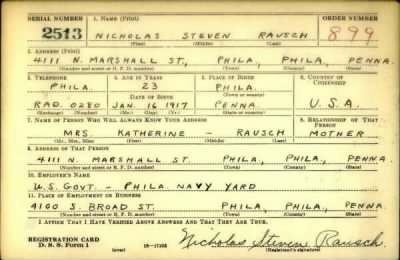 SERIAL NUMBER 1. NAME (Print) ORDER NUMBER
2513 NICHOLAS STEVEN RAUSCH 899
(First) (Middle) (Last)
2. ADDRESS (Print)
4111 N. MARSHALL ST., PHILA, PHILA, PENNA.
(Number and street or R. F. D. number) (Town) (County) (State)
3. TELEPHONE 4. AGE IN YEARS 5. PLACE OF BIRTH 6. COUNTRY OF CITIZENSHIP
PHILA. 23 PHILA.
(Town or county)
DATE OF BIRTH
RAD. 0280 JAN. 16 1917 PENNA. U.S.A.
(Exchange) (Number) (Mo.) (Day) (Yr.) (State or country)
7. NAME OF PERSON WHO WILL ALWAYS KNOW YOUR ADDRESS 8. RELATIONSHIP OF THAT PERSON
MRS. KATHERINE - RAUSCH MOTHER
(Mr., Mrs., Miss) (First) (Middle) (Last)
9. ADDRESS OF THAT PERSON
4111 N. MARSHALL ST PHILA, PHILA, PENNA.
(Number and street or R. F. D. number) (Town) (County) (State)
10. EMPLOYER'S NAME
U.S. GOVT. - PHILA. NAVY YARD
11. PLACE OF EMPLOYMENT OR BUSINESS
4100 S. BROAD ST. PHILA, PHILA, PENNA.
(Number and street or R. F. D. number) (Town) (County) (State)
I AFFIRM THAT I HAVE VERIFIED ABOVE ANSWERS AND THAT THEY ARE TRUE.
REGISTRATION CARD
D. S. S. Form 1 (over) 16-17105 Nicholas Steven Rausch.
(Registrant's signature)